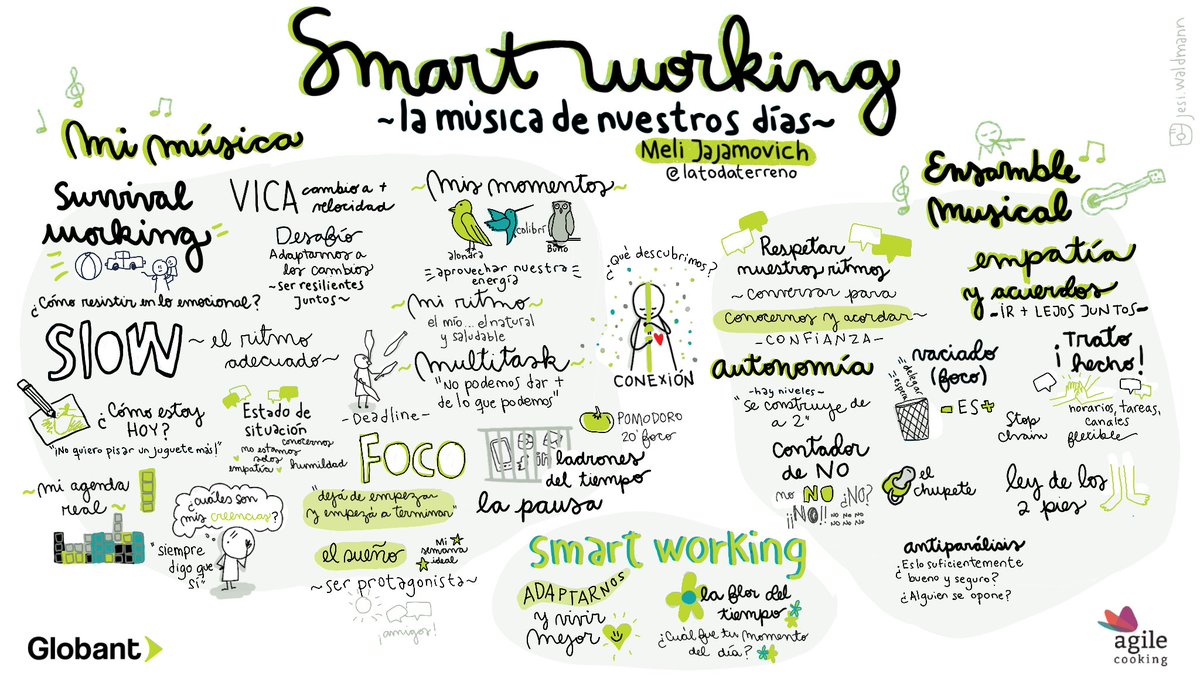 Smart working
~la música de nuestros días~
Meli Jajamovich
@latodaterreno
jesi.waldmann
mi música
Survival
working
¿Cómo resistir en lo emocional?
VICA cambio a +
velocidad
Desafío
Adaptarnos a
los cambios
~ser resilientes
juntos~
~mis momentos~
alondra
colibrí
Búho
aprovechar nuestra
energía
SLOW ~el ritmo
adecuado~
~mi ritmo~
el mío... el natural
y saludable
~multitask~
"No podemos dar +
de lo que podemos"
-Deadline-
¿Cómo estoy
HOY?
"¡No quiero pisar un juguete más!"
Estado de
situación
conocernos
no estamos
solos
empatía
humildad
FOCO
"dejá de empezar
y empezá a terminar"
POMODORO
20' foco
ladrones
del tiempo
la pausa
~mi agenda
real~
¿cuáles son
mis creencias?
"siempre
digo que
sí"
el sueño
Mi
semana
ideal
~ser protagonista~
¡amigos!
¿Qué descubrimos?
CONEXIÓN
Ensamble
musical
Respetar
nuestros ritmos
~conversar para
conocernos y acordar~
-CONFIANZA-
empatía
y acuerdos
-IR + LEJOS JUNTOS-
autonomía
-hay niveles-
"se construye de
a 2"
Contador
de NO
no NO ¿NO?
¡¡NO!! NO NO NO
NO NO NO
vaciado
(foco)
delegar
espera
- ES +
¡Trato
hecho!
horarios, tareas,
canales
flexible
Stop
chain
el
chupete
ley de los
2 pies
antiparálisis
¿Es lo suficientemente
bueno y seguro?
¿Alguien se opone?
smart working
ADAPTARNOS
y vivir
mejor
la flor del
tiempo
¿Cuál fue tu momento
del día?
Globant
agile
cooking